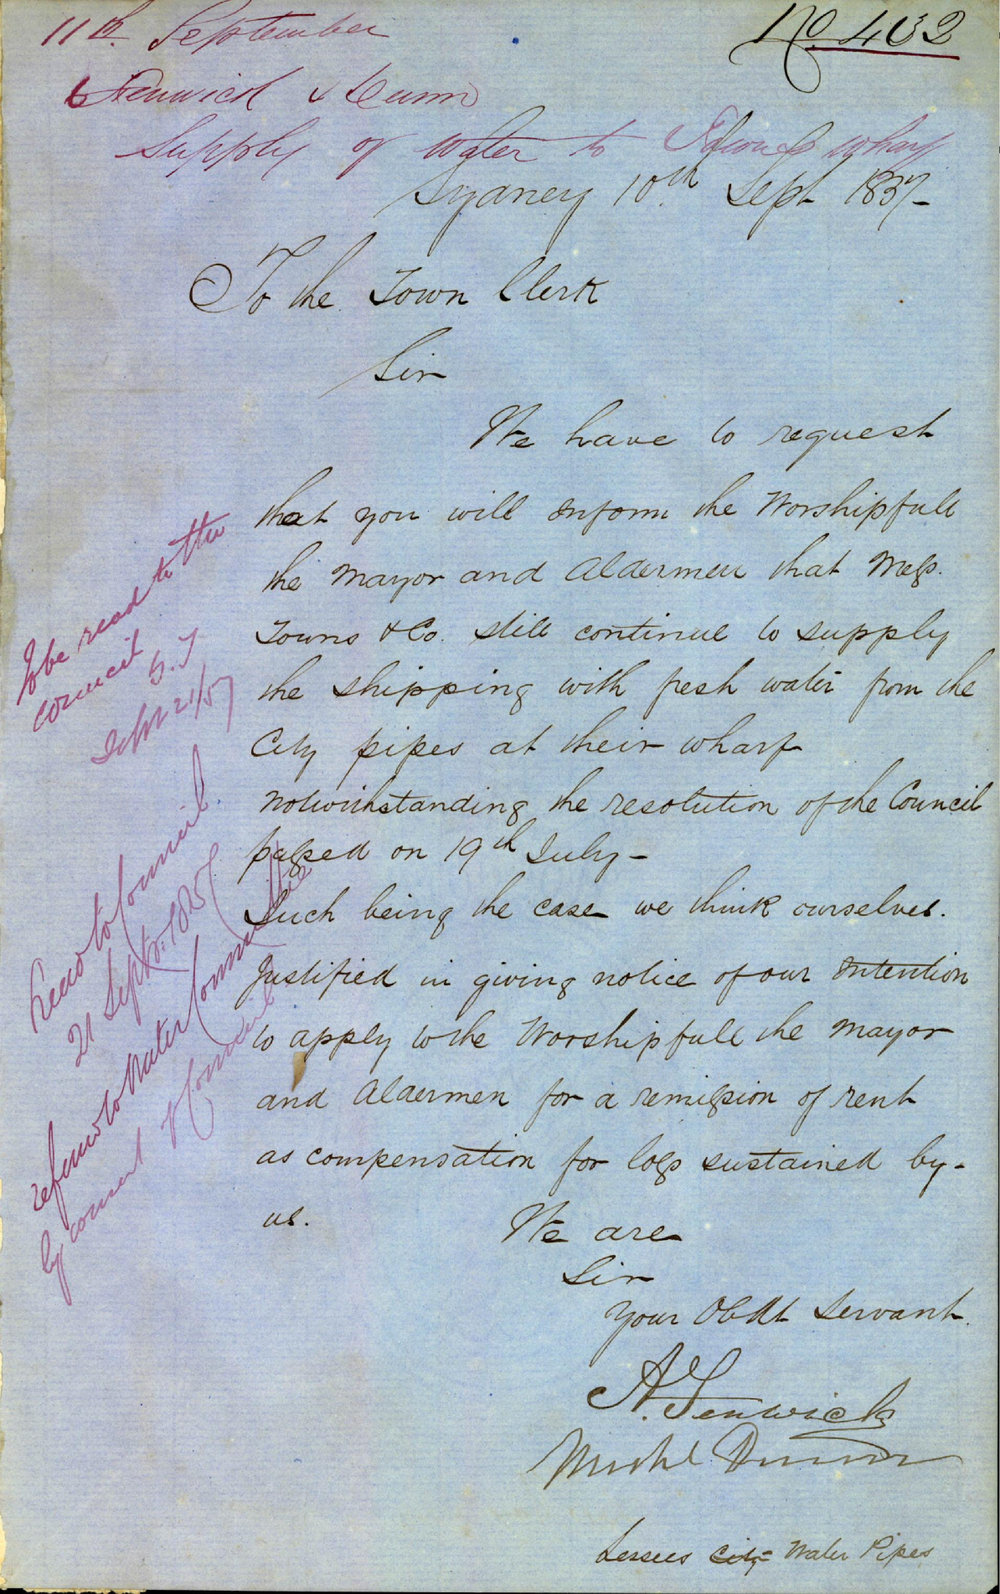 11th. September
No. 402
Fenwick & Dunn
Supply of Water to Towns's Wharf
Sydney 10th Sept 1857
To the Town Clerk
Sir
We have to request
that you will Inform the Worshipfull
the Mayor and Aldermen that Mess.
Towns & Co. still continue to supply
the shipping with fresh water from the
City pipes at their wharf
Notwithstanding the resolution of the Council
passed on 19th July-
Such being the case we think ourselves.
Justified in giving notice of our Intention
to apply to the Worshipfull the Mayor
and Aldermen for a remission of rent
as compensation for loss sustained by-
us.
We are
Sir
Your Obdt Servant.
A. Fenwick
Michl Dunn
Lessees City Water Pipes
To be read to the
Council
G. T
Sept 21/57
Read to Council
21 Septr. 1857
referred to Water Committee
by consent of Council